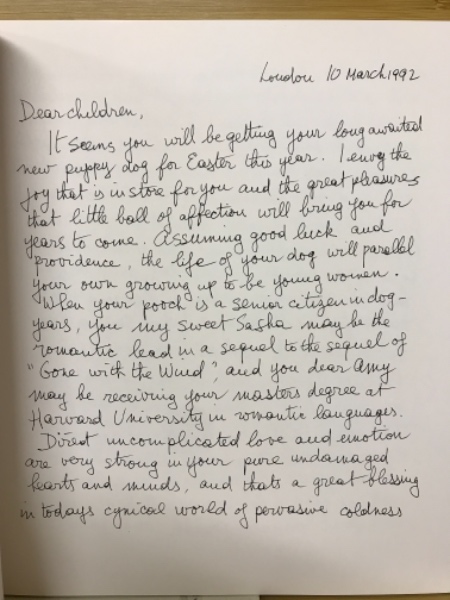 London 10 March 1992
Dear children,
It seems you will be getting your long awaited
new puppy dog for Easter this year. I envy the
joy that is in store for you and the great pleasures
that little ball of affection will bring you for
years to come. Assuming good luck and
providence, the life of your dog will parallel
your own growing up to be young women.
When your pooch is a senior citizen in dog-
years, you my sweet Sasha may be the
romantic lead in a sequel to the sequel of
"Gone with the Wind", and you dear Amy
may be receiving your masters degree at
Harvard University in romantic languages.
Direct uncomplicated love and emotion
are very strong in your pure undamaged
hearts and minds, and thats a great blessing
in todays cynical world of pervasive coldness